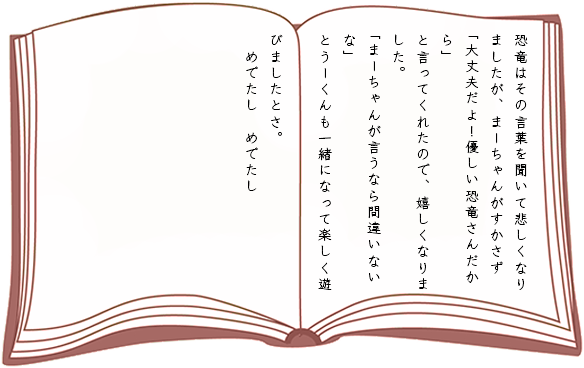 恐竜はその言葉を聞いて悲しくなり
ましたが、まーちゃんがすかさず
「大丈夫だよ！優しい恐竜さんだか
ら」
と言ってくれたので、嬉しくなりま
した。
「まーちゃんが言うなら間違いない
な」
とうーくんも一緒になって楽しく遊
びましたとさ。
めでたし　めでたし